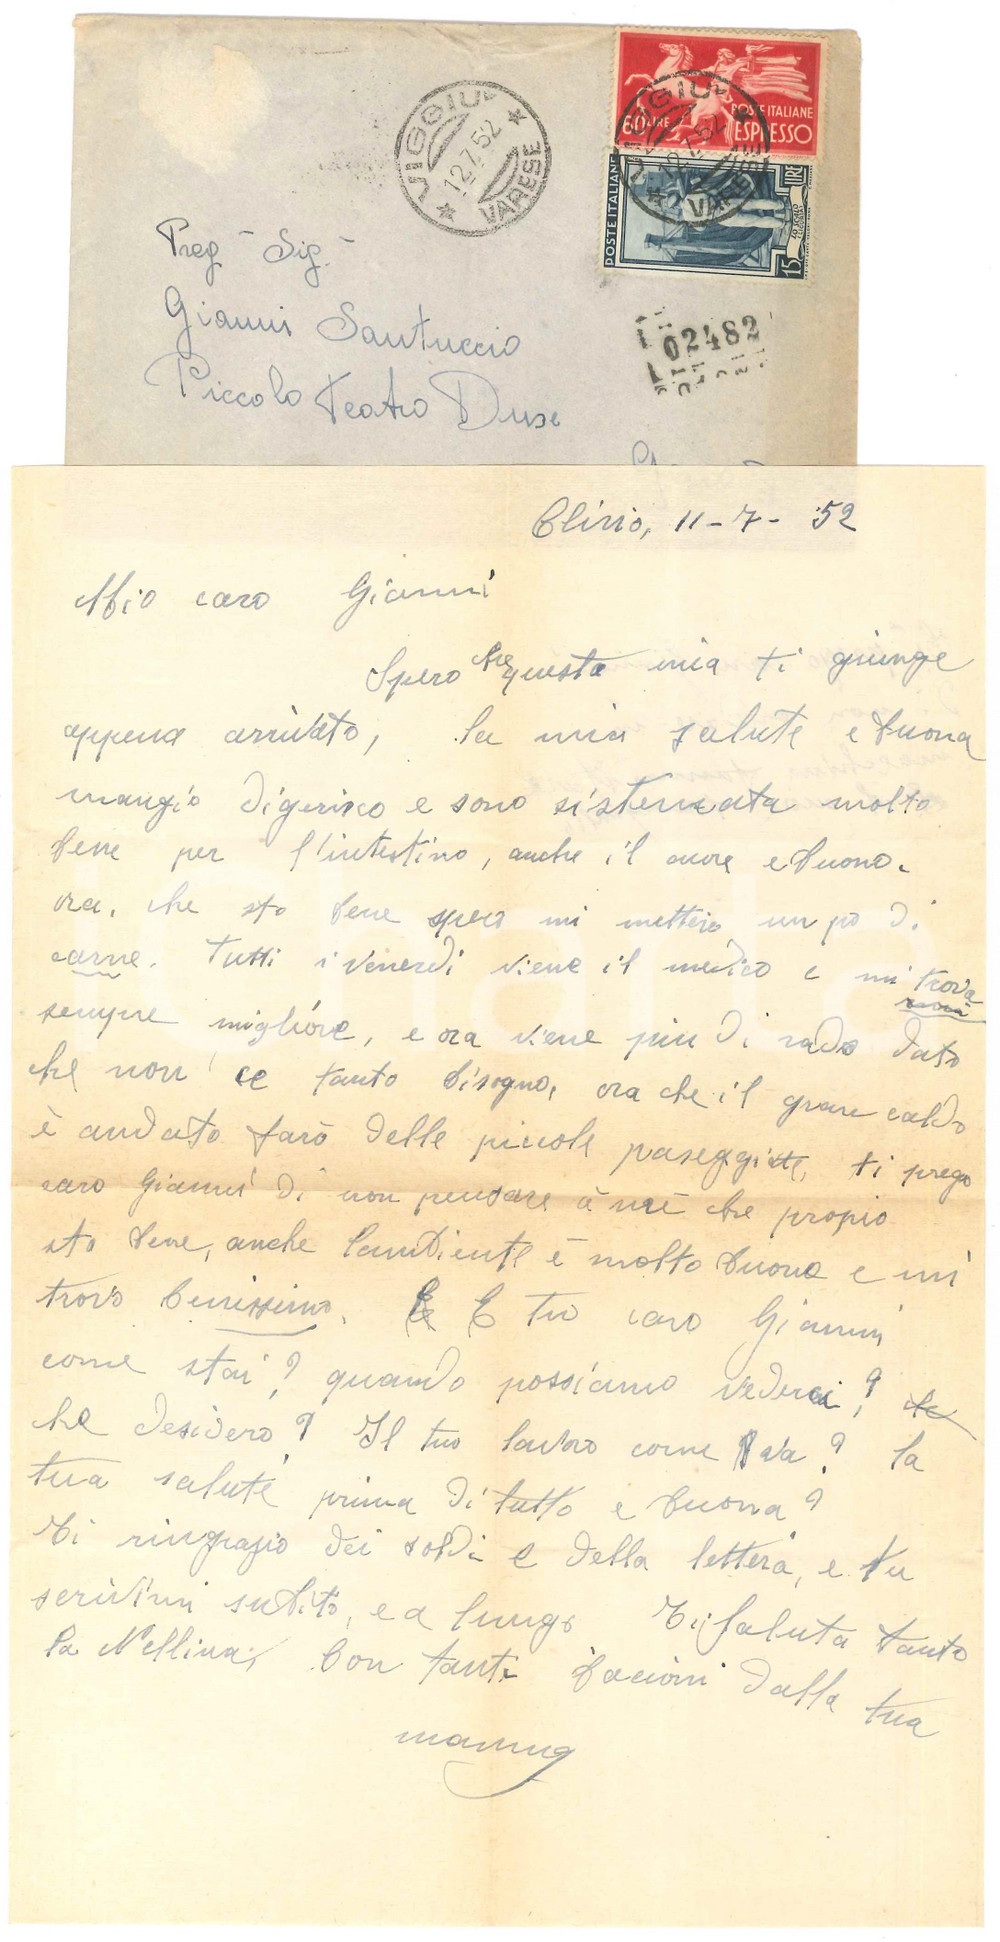 VIGGIU'
12.7.52
VARESE
60 LIRE
POSTE ITALIANE
ESPRESSO
POSTE ITALIANE
LIRE
15
02482
Preg. Sig.
Gianni Santuccio
Piccolo Teatro Duse
Clivio, 11-7-52
Mio caro Gianni
Spero che questa mia ti giunge
appena arrivato, la mia salute e buona
mangio digerisco e sono sistemata molto
bene per l'intestino, anche il cuore e buono.
ora, che sto bene spero mi mettero un po di
carne. Tutti i venerdi viene il medico e mi trova
sempre migliore, e ora viene piu di rado dato
che non ce tanto bisogno, ora che il gran caldo
è andato farò delle piccole paseggiate, ti prego
caro Gianni di non pensare a me che propio
sto bene, anche l'ambiente è molto buono e mi
trovo benissimo. E tu caro Gianni
come stai? quando possiamo vederci?
che desidero? Il tuo lavoro come va? la
tua salute prima di tutto e buona?
Ti ringrazio dei soldi e della lettera, e tu
scrivimi subito, e a lungo Ti saluta tanto
la Nellina, Con tanti bacioni dalla tua
mamma